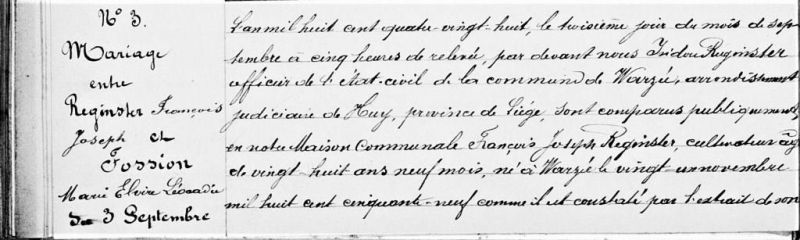 N° 3.
Mariage
entre
Reginster François
Joseph et
Fossion
Marie Elvire Léocadie
3 Septembre
L'an mil huit cent quatre-vingt-huit, le troisième jour du mois de sep-
tembre à cinq heures de relevée, par devant nous Isidore Reginster
officier de l'état-civil de la commune de Warzée, arrondissement
judiciaire de Huy, province de Liége, sont comparus publiquement
en notre Maison Communale François Joseph Reginster, cultivateur âgé
de vingt-huit ans neuf mois, né à Warzée le vingt-un novembre
mil huit cent cinquante-neuf comme il est constaté par l'extrait de son